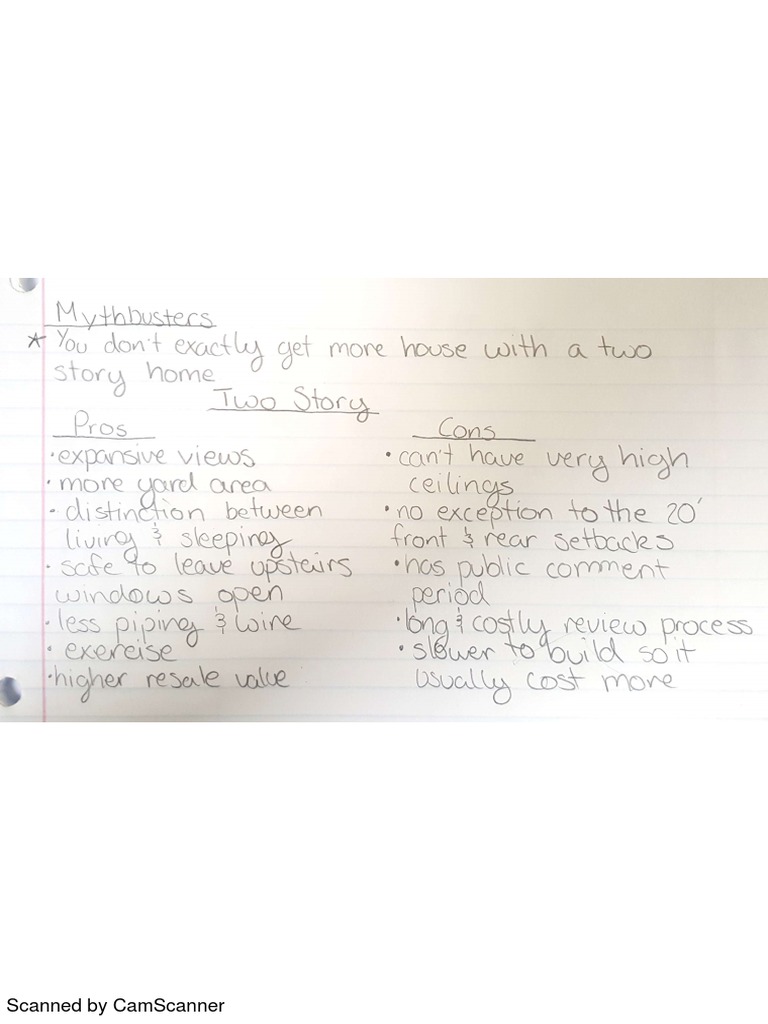 Mythbusters
* You don't exactly get more house with a two
story home
Two Story
Pros
• expansive views
• more yard area
• distinction between
living & sleeping
• safe to leave upstairs
windows open
• less piping & wire
• exercise
• higher resale value
Cons
• can't have very high
ceilings
• no exception to the 20'
front & rear setbacks
• has public comment
period
• long & costly review process
• slower to build so it
usually cost more
Scanned by CamScanner